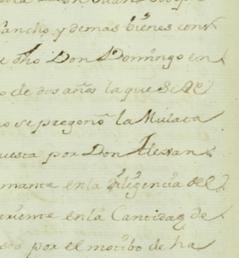 ancho, y demas bienes cons
e dho Don Domingo en
o de dos años la que se
o se pregonó la Mulata
uesta por Don Alexan
manta en la diligencia del
en la Cantidad de
por el motibo de ha